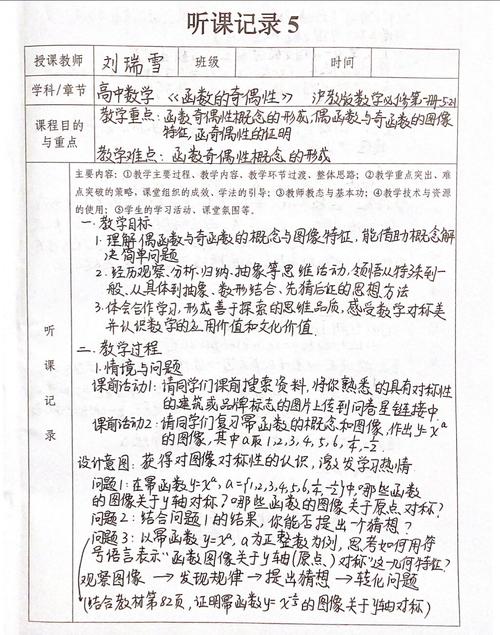 听课记录 5
授课教师 刘瑞雪 班级 时间
学科/章节 高中数学 《函数的奇偶性》 沪教版数学必修第一册-5.2.1
课程目的与重点
教学重点:函数奇偶性概念的形成,偶函数与奇函数的图像
特征,函奇偶性的证明
教学难点:函数奇偶性概念的形成
主要内容:①教学主要过程、教学内容、教学环节过渡、整体思路;②教学重点突出、难
点突破的策略,课堂组织的成效、学法的引导;③教师教态与基本功;④教学技术与资源
的使用;⑤学生的学习活动、课堂氛围等。
听课记录
一.教学目标
1.理解偶函数与奇函数的概念与图像特征,能借助概念解
决简单问题
2.经历观察、分析、归纳、抽象等思维活动,领悟从特殊到一
般、从具体到抽象、数形结合、先猜后证的思想方法
3.体会合作学习,形成善于探索的思维品质,感受数学对称美
并认识数学的应用价值和文化价值
二.教学过程
1.情境与问题
课前活动1:请同学们课前搜索资料,将你熟悉的具有对称性
的建筑或品牌标志的图片上传到问卷星链接中
课前活动2:请同学们复习幂函数的概念和图像,作出y=xᵃ
的图像,其中a取1,2,3,4,5,6,
设计意图:获得对图像对称性的认识,激发学习热情
问题1:在幂函数y=xᵃ,a={1,2,3,4,5,6, }中,哪些函数
的图像关于y轴对称?哪些函数的图像关于原点对称?
问题2:结合问题1的结果,你能否提出一个猜想?
问题3:以幂函数y=xᵃ,a为正整数为例,思考如何用符
号语言表示“函数图像关于y轴(原点)对称”这一几何特征?
观察图像 → 发现规律 → 提出猜想 → 转化问题
(结合教材第82页,证明幂函数y= 的图像关于y轴对称)